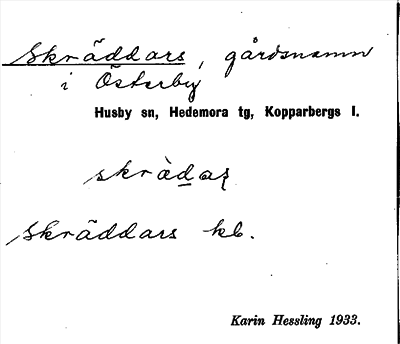 Skräddars, gårdsnamn
i Österby
Husby sn, Hedemora tg, Kopparbergs l.
Skräddars kb.
Karin Hessling 1933.